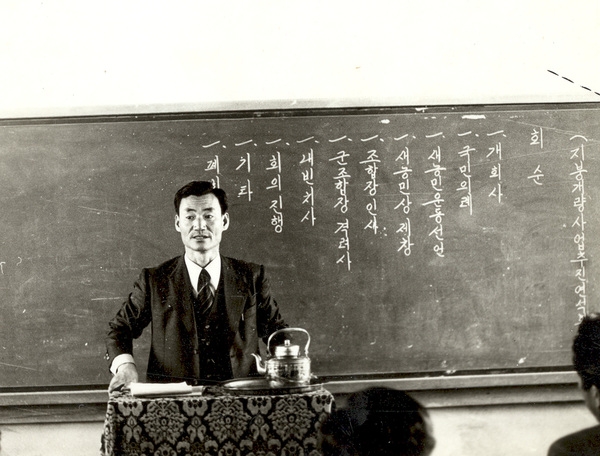 (지붕개량사업추진연
회 순
一. 개회사
一. 국민의례
一. 새농민운동선언
一. 새농민상 제창
一. 조합장인사
一. 군조합장 격려사
一. 내빈치사
一. 회의진행
一. 기타
一. 폐